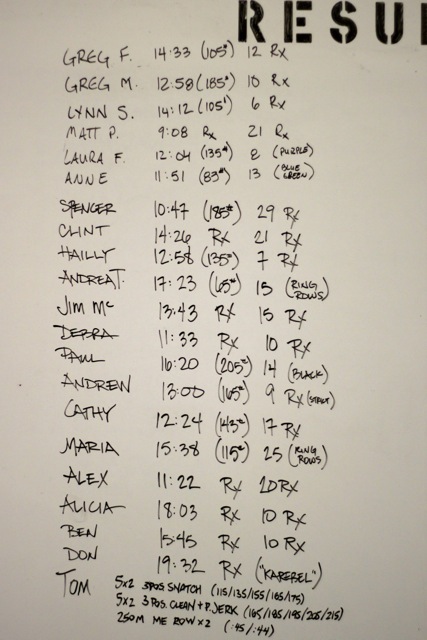 RESU
GREG F. 14:33 (105#) 12 Rx
GREG M. 12:58 (185#) 10 Rx
LYNN S. 14:12 (105#) 6 Rx
MATT P. 9:08 Rx 21 Rx
LAURA F. 12:04 (135#) 8 (PURPLE)
ANNE 11:51 (83#) 13 (BLUE GREEN)
SPENCER 10:47 (185#) 29 Rx
CLINT 14:26 Rx 21 Rx
HAILLY 12:58 (135#) 7 Rx
ANDREA T. 17:23 (65#) 15 (RING ROWS)
JIM Mc 13:43 Rx 15 Rx
DEBRA 11:33 Rx 10 Rx
PAUL 16:20 (205#) 14 (BLACK)
ANDREW 13:00 (165#) 9 Rx (STRICT)
CATHY 12:24 (143#) 17 Rx
MARIA 15:38 (115#) 25 (RING ROWS)
ALEX 11:22 Rx 20 Rx
ALICIA 18:03 Rx 10 Rx
BEN 15:45 Rx 10 Rx
DON 19:32 Rx ("KAREBEL")
TOM 5x2 3POS. SNATCH (115/135/155/165/175)
5x2 3 POS. CLEAN + P. JERK (165/185/195/205/215)
250M ME ROW x 2 (:45/:44)